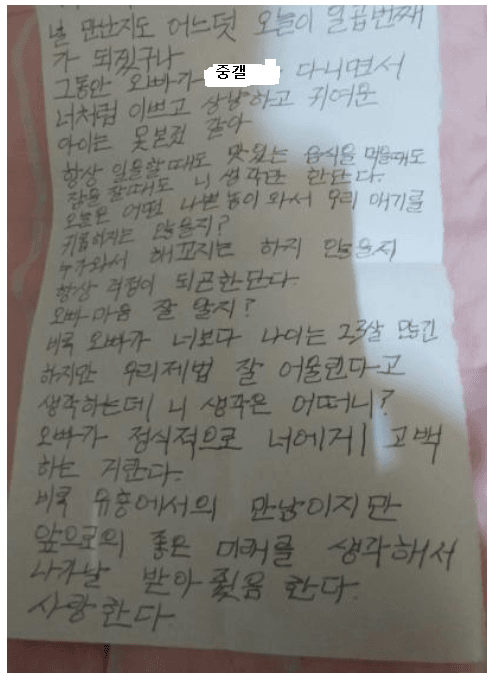 널 만난지도 어느덧 오늘이 일곱번째
가 되젔구나
그동안 오빠가 중갤 다니면서
너처럼 이쁘고 상냥하고 귀여운
아이는 못본것 같아
항상 일을할때도 맛있는 음식을 먹을때도
잠을 잘때도 니 생각만 한단다.
오늘은 어떤 나쁜 놈이 와서 우리 애기를
하지는 않을지?
누가와서 해꼬지는 하지 않을지
항상 걱정이 되곤한단다.
오빠마음 잘 알지?
비록 오빠가 너보다 나이는 23살 많긴
하지만 우리제법 잘 어울린다고
생각하는데 니 생각은 어떠니?
오빠가 정식적으로 너에게 고백
하는 거란다.
비록 유흥에서의 만남이지만
앞으로의 좋은 미래를 생각해서
나가날 받아 줬음 한다.
사랑한다.